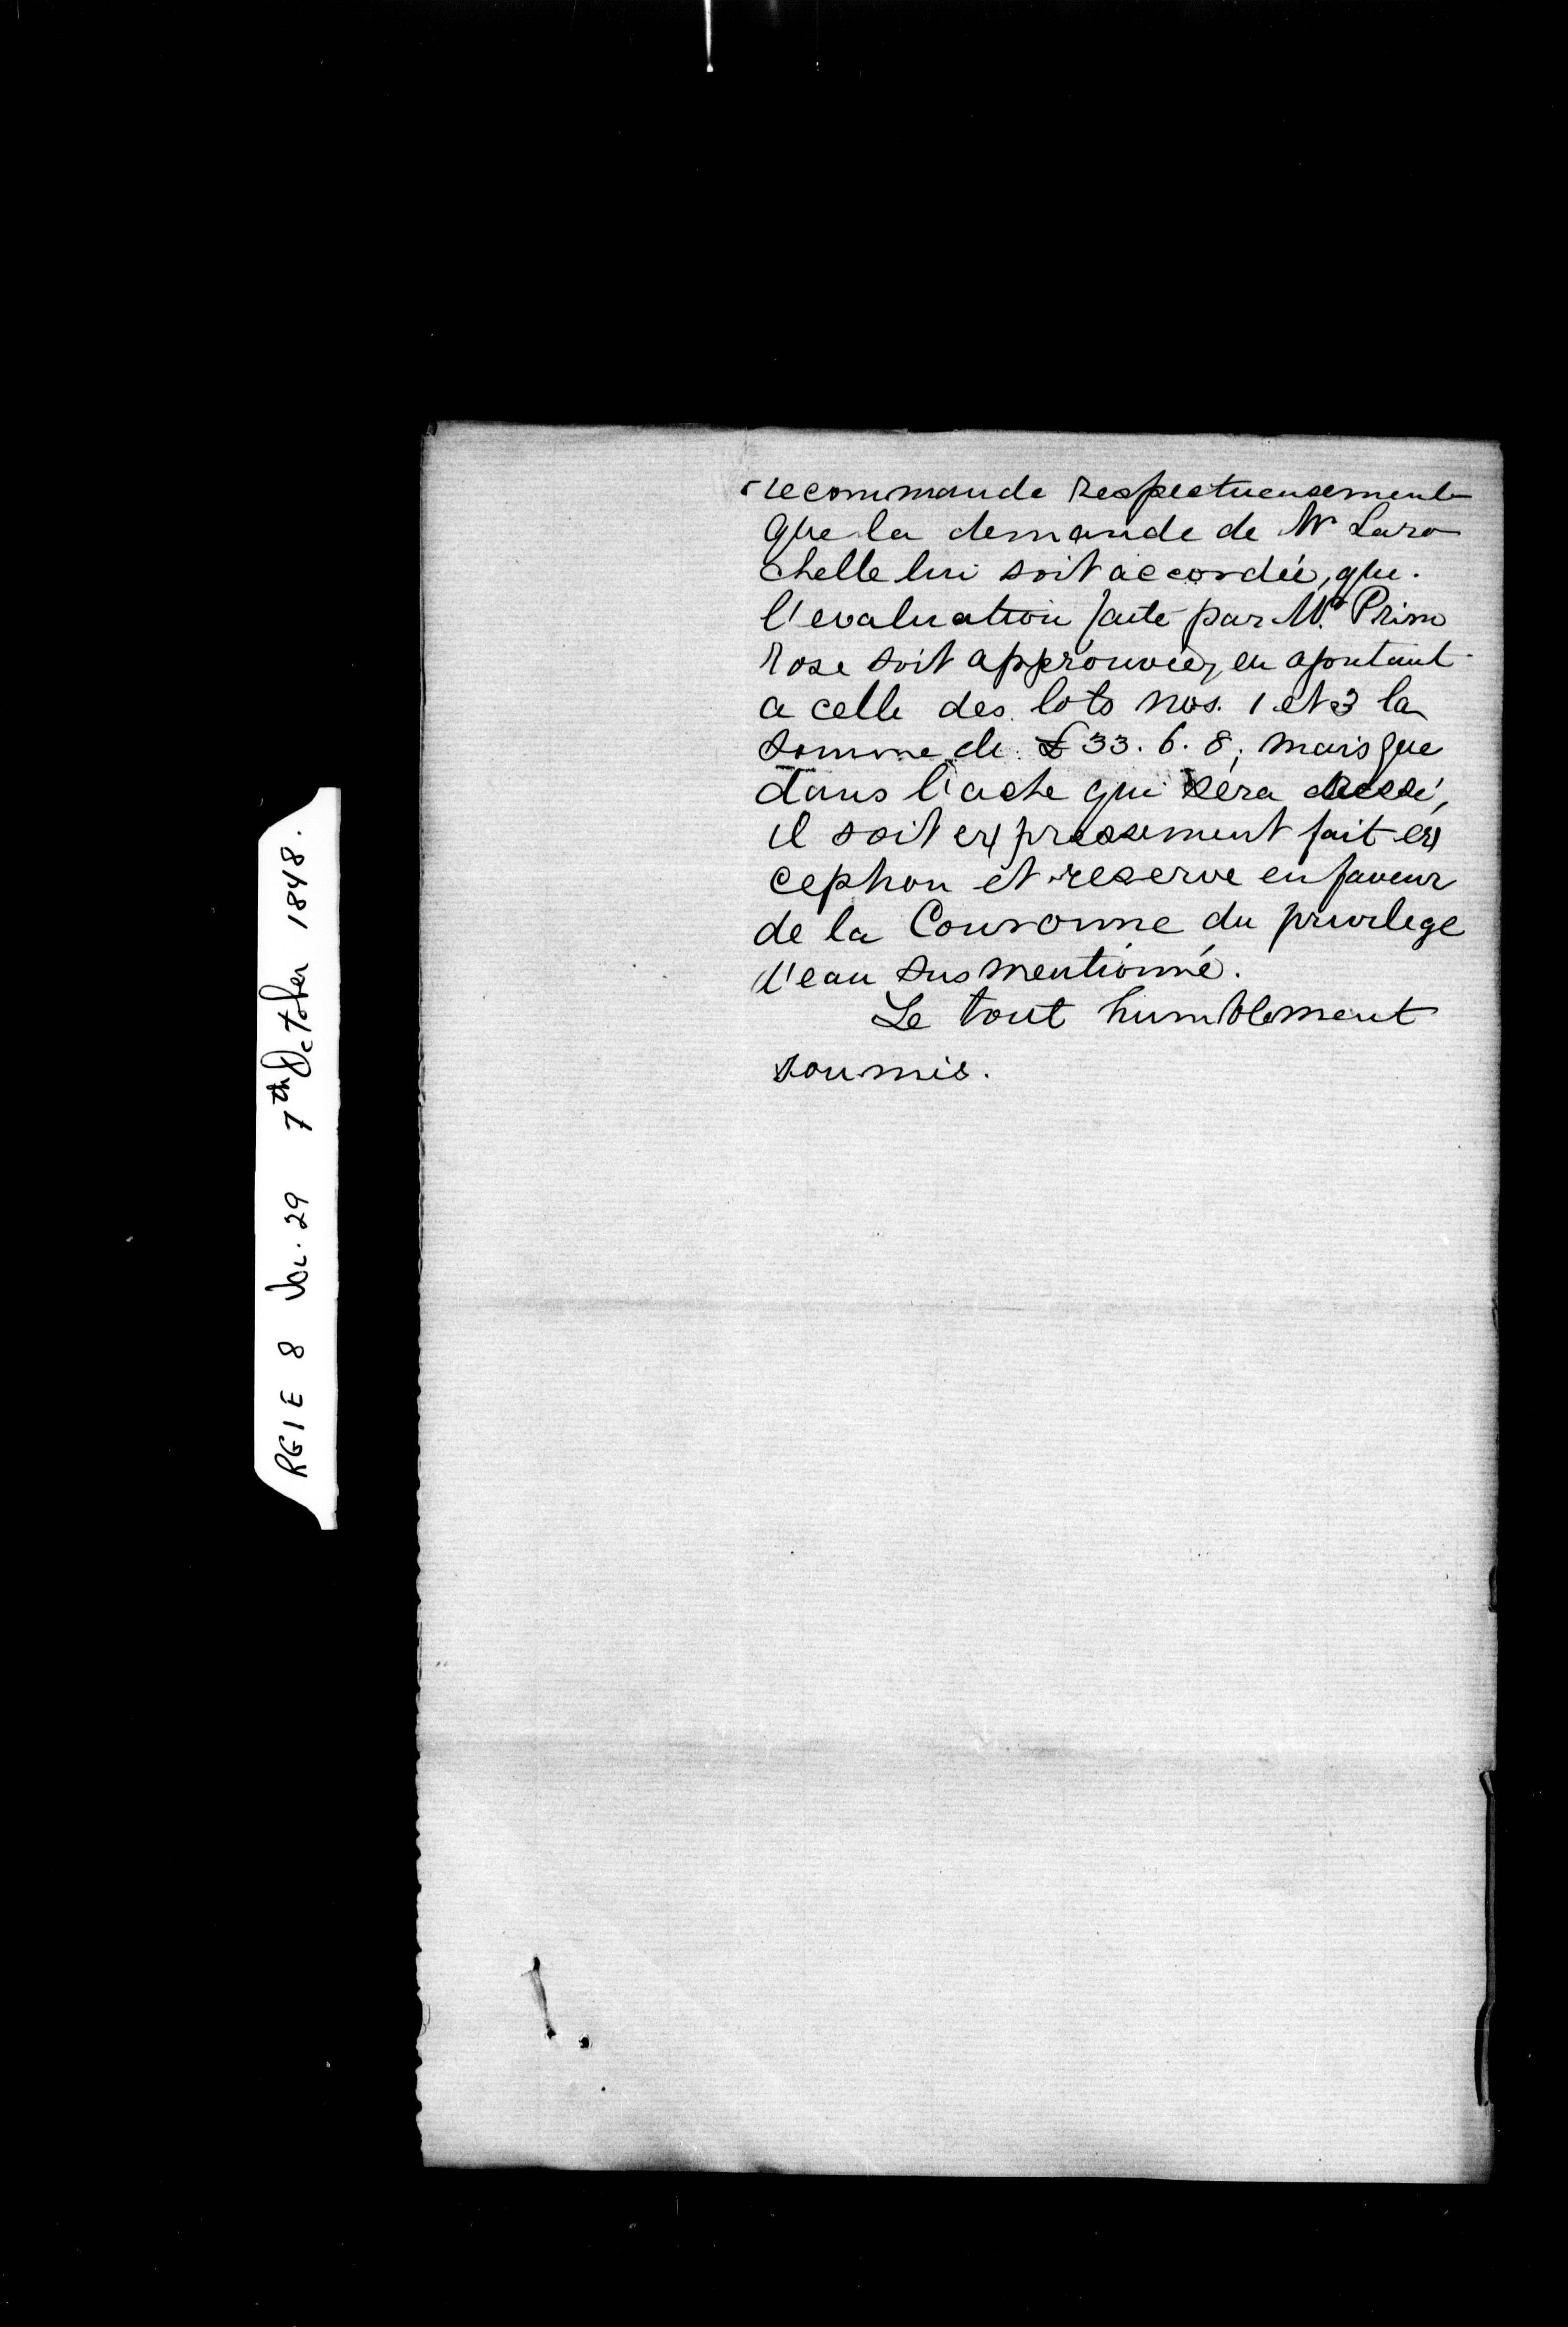 recommande respectueusement
que la demande de Mr Laro
chelle lui soit accordée, que
l'evaluation faite par Mr. Prim
rose soit approuvée, en ajoutant
a celle des lots nos. 1 et 3 la
somme de £33. 6. 8; mais que
dans l'acte qui sera dressé,
il soit expressement fait ex
ception et reserve en faveur
de la Couronne du privilege
d'eau sus mentionné.
Le tout humblement
soumis.
RG1 E 8 Vol. 29 7th October 1848.